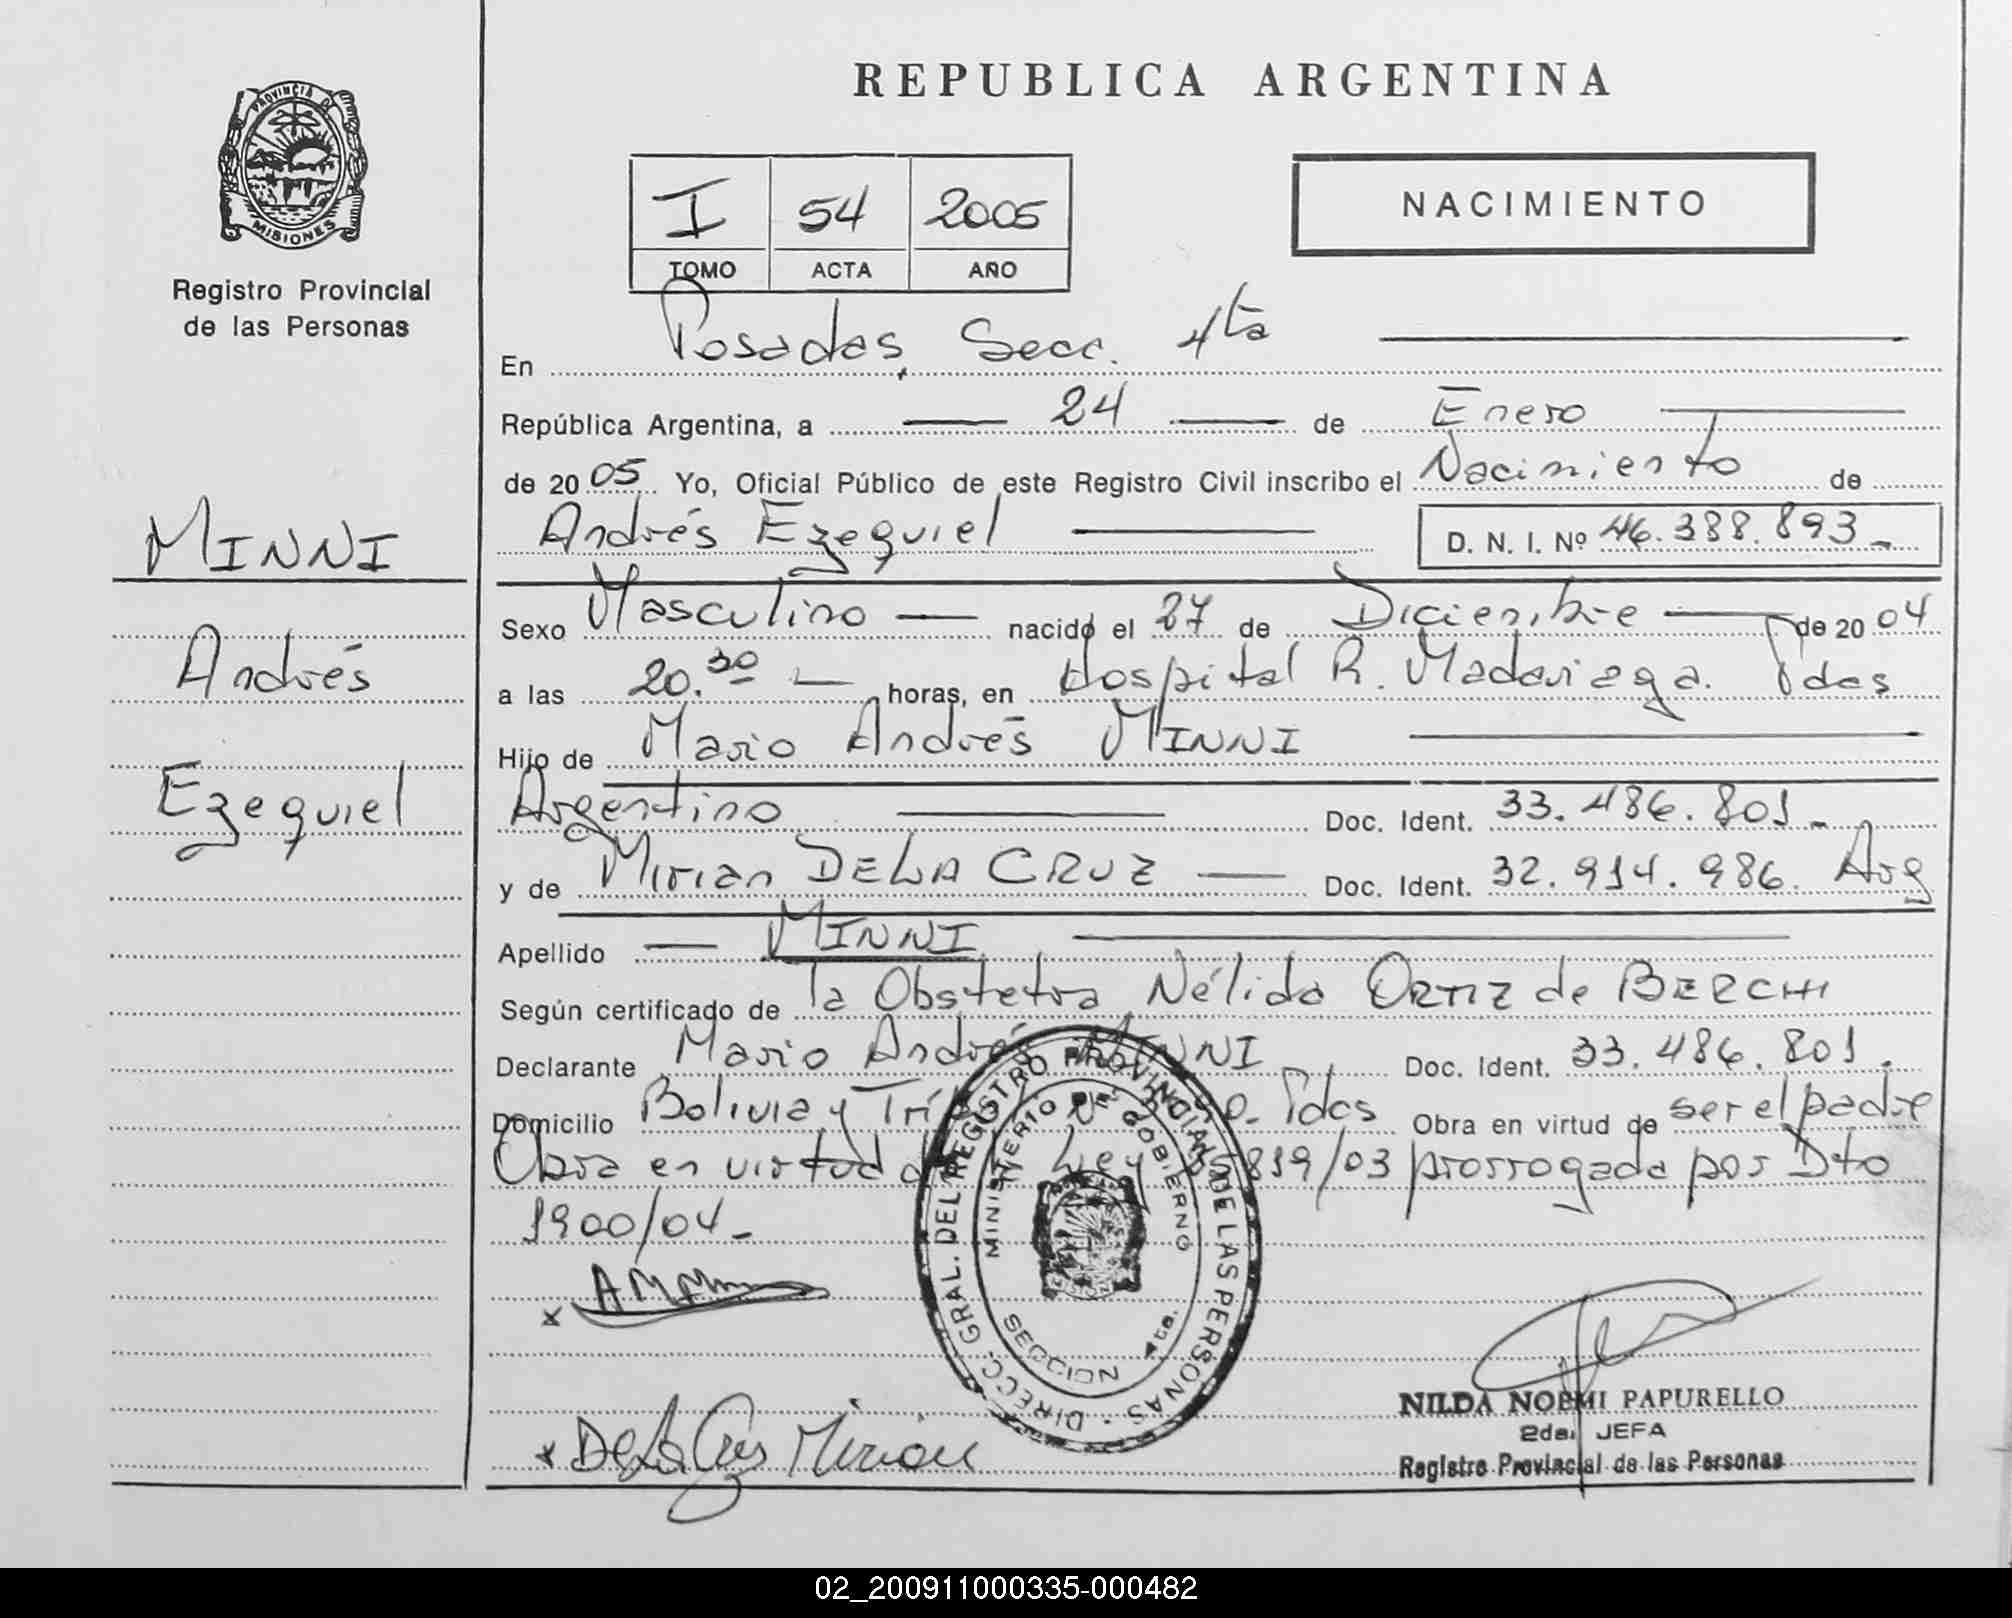 REPUBLICA ARGENTINA
PROVINCIA DE
MISIONES
Registro Provincial
de las Personas
I 54 2005
TOMO ACTA AÑO
NACIMIENTO
En Posadas, Secc. 4ta
República Argentina, a 24 de Enero
de 2005 Yo, Oficial Público de este Registro Civil inscribo el Nacimiento de
Andrés Ezequiel D. N. I. Nº 46.388.893
MINNI
Andrés
Ezequiel
Sexo Masculino nacido el 27 de Diciembre de 2004
a las 20.30 horas, en Hospital R. Madariaga. Pdas
Hijo de Mario Andrés MINNI
Argentino Doc. Ident. 33.486.801
y de Mirian DE LA CRUZ Doc. Ident. 32.914.986. Arg
Apellido MINNI
Según certificado de la Obstetra Nélida ORTIZ de BERCHI
Declarante Mario Andrés MINNI Doc. Ident. 33.486.801.
Domicilio Bolivia y Pdas Obra en virtud de ser el padre
Obra en virtud Ley 819/03 prorrogada por Dto
1900/04
DIRECC. GRAL. DEL REGISTRO PROVINCIAL DE LAS PERSONAS
MINISTERIO DE GOBIERNO
SECCION 4ta.
x
x De La Cruz Mirian
NILDA NOEMI PAPURELLO
2da. JEFA
Registro Provincial de las Personas
02_200911000335-000482